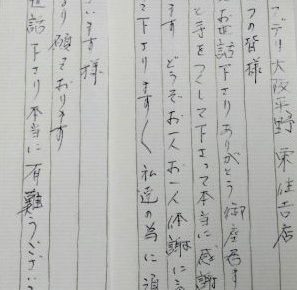 デリ大阪平野東住吉店
の皆様
お世話下さりありがとう御座居ます
と手をつくして下さって本当に感謝
ます どうぞお一人お一人体調に
て下さります 私達の為に
います 様
より願っております
世話下さり本当に有難うござい